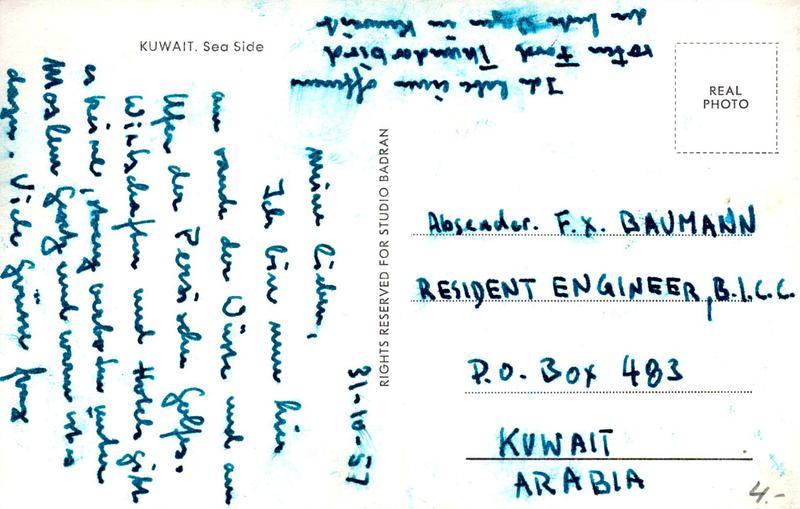 KUWAIT. Sea Side
REAL
PHOTO
RIGHTS RESERVED FOR STUDIO BADRAN
31-10-57
Meine Lieben,
Ich bin nun hier
am rande der Wüste und am
Ufer der Persischen Golfes.
Wirtschaften und Hotels gibt
es keine, streng verboten under
Moslem Gesetz und warm ist es
dazu. Viele Grüsse franz
Ich habe einen offenen
roten Ford Thunderbird
in Kuwait
Absender. F.X. BAUMANN
RESIDENT ENGINEER, B.I.C.C.
P.O. BOX 483
KUWAIT
ARABIA
4.-